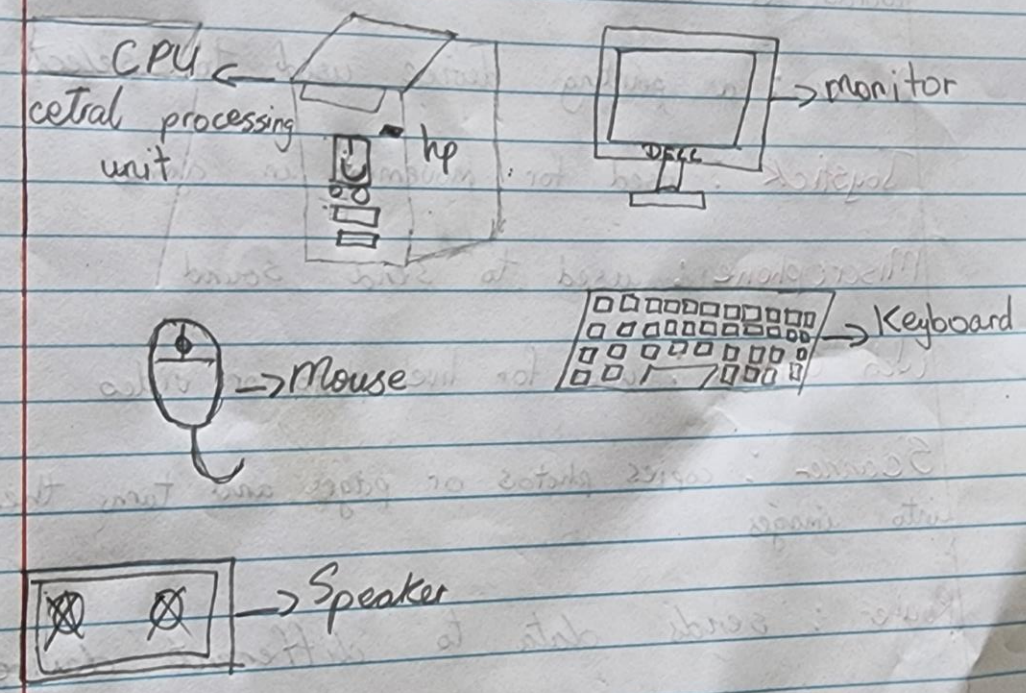 CPU
cetral processing
unit
hp
monitor
DELL
Mouse
Keyboard
Speaker